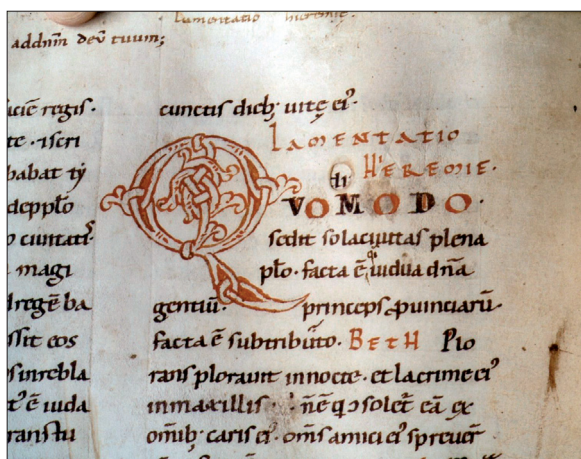 lamentatio hieremie.
addnm̄ deū tuum;
iciē regis·
te·iscri
babat
deppło
ciuitati
magi
regē ba
ssit eos
sinrebla
ē iuda
ranstu
cunctis dieb; uitę ei᾽·
LAMENTATIO
HIEREMIE·
QVOMODO·
sedit sola ciuitas plena
pło· facta ē uidua dn̄a
gentiū· princeps ꝓuinciarū·
facta ē subtributo· BETH Plo
rans plorauit innocte· et lacrime ei᾽
inmaxillis· n̄ ē q solet᷑ eā ex
om̄ib; caris ei᾽· om̄s amici ei᾽ spreuer̄